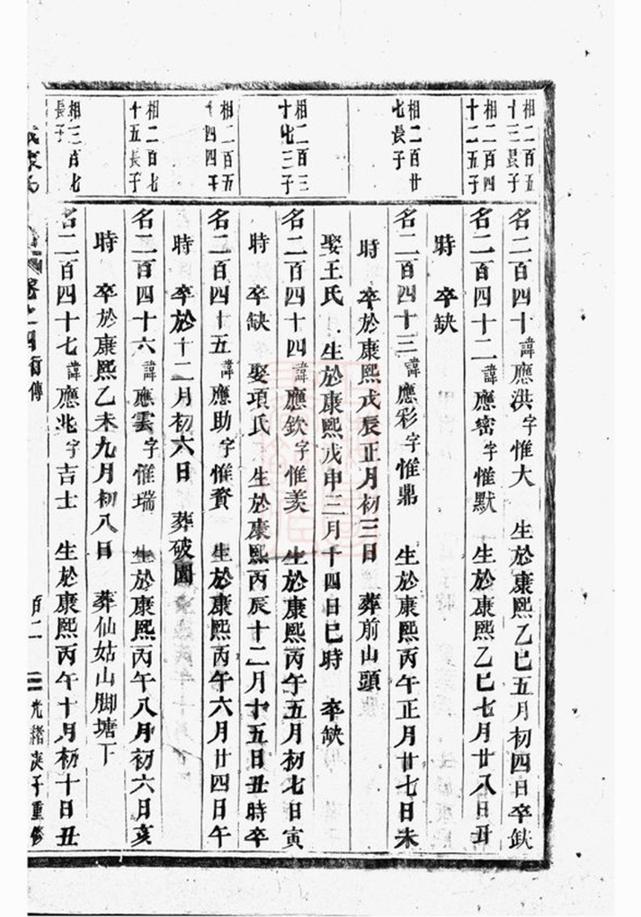 相二百五
十三長子
名二百四十諱應洪字惟大 生於康熙乙巳五月初四日卒缺
相二百四
十二五子
名二百四十二諱應密字惟默 生於康熙乙巳七月廿八日丑
時 卒缺
相二百廿
七長子
名二百四十三諱應彩字惟鼎 生於康熙丙午正月廿七日未
時 卒於康熙戊辰正月初三日 葬前山頭
娶王氏 生於康熙戊申三月十四日巳時 卒缺
相二百三
十七三子
名二百四十四諱應欽字惟美 生於康熙丙午五月初七日寅
時 卒缺 娶項氏 生於康熙丙辰十二月十五日丑時卒
相二百五
十四四子
名二百四十五諱應助字惟賚 生於康熙丙午六月廿四日午
時 卒於十二月初六日 葬破園
相二百七
十五長子
名二百四十六諱應雲字惟瑞 生於康熙丙午八月初六日亥
時 卒於康熙乙未九月初八日 葬仙姑山脚塘下
相二百七
長子
名二百四十七諱應兆字吉士 生於康熙丙午十月初十日丑
卷之四行傳 百二 光緒庚子重修